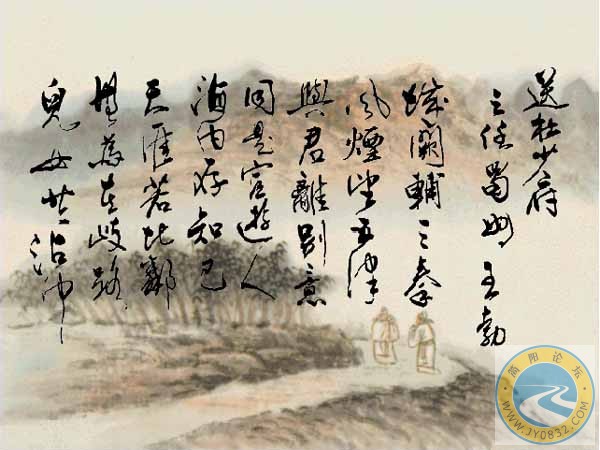 送杜少府
之任蜀州 王勃
城闕輔三秦
风煙望五津
與君離別意
同是宦遊人
海内存知己
天涯若比鄰
無為在歧路
兒女共沾巾
简阳论坛
WWW.JY0832.COM